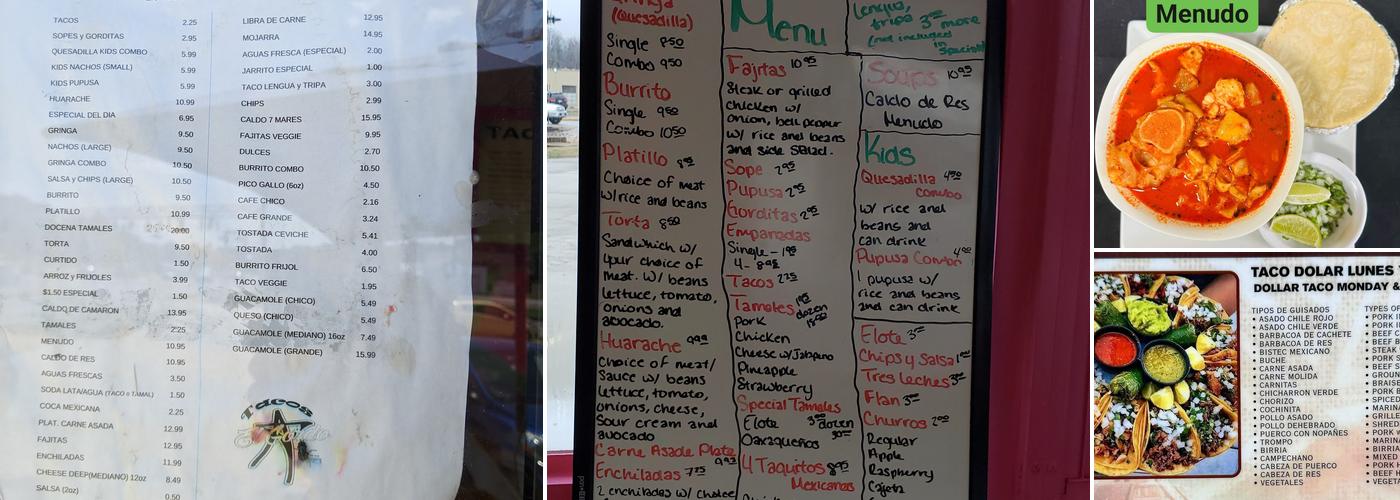 TACOS 2.25
SOPES y GORDITAS 2.95
QUESADILLA KIDS COMBO 5.99
KIDS NACHOS (SMALL) 5.99
KIDS PUPUSA 5.99
HUARACHE 10.99
ESPECIAL DEL DIA 6.95
GRINGA 9.50
NACHOS (LARGE) 9.50
GRINGA COMBO 10.50
SALSA y CHIPS (LARGE) 10.50
BURRITO 9.50
PLATILLO 10.99
DOCENA TAMALES 20.00
TORTA 9.50
CURTIDO 1.50
ARROZ y FRIJOLES 3.99
$1.50 ESPECIAL 1.50
CALDO DE CAMARON 13.95
TAMALES 2.25
MENUDO 10.95
CALDO DE RES 10.95
AGUAS FRESCAS 3.50
SODA LATA/AGUA (TACO o TAMAL) 1.50
COCA MEXICANA 2.25
PLAT. CARNE ASADA 12.99
FAJITAS 12.95
ENCHILADAS 11.99
CHEESE DEEP(MEDIANO) 12oz 8.49
SALSA (2oz) 0.50
LIBRA DE CARNE 12.95
MOJARRA 14.95
AGUAS FRESCA (ESPECIAL) 2.00
JARRITO ESPECIAL 1.00
TACO LENGUA y TRIPA 3.00
CHIPS 2.99
CALDO 7 MARES 15.95
FAJITAS VEGGIE 9.95
DULCES 2.70
BURRITO COMBO 10.50
PICO GALLO (6oz) 4.50
CAFE CHICO 2.16
CAFE GRANDE 3.24
TOSTADA CEVICHE 5.41
TOSTADA 4.00
BURRITO FRIJOL 6.50
TACO VEGGIE 1.95
GUACAMOLE (CHICO) 5.49
QUESO (CHICO) 5.49
GUACAMOLE (MEDIANO) 16oz 7.49
GUACAMOLE (GRANDE) 15.99
Tacos
Gringa
(Quesadilla)
Single 8.50
Combo 9.50
Burrito
Single 9.50
Combo 10.50
Platillo
Choice of meat
w/rice and beans
Torta 8.50
Sandwhich w/
your choice of
meat. w/ beans
lettuce, tomato,
onions and
avocado.
Huarache
Choice of meat/
Sauce w/ beans
lettuce, tomato,
onions, cheese,
Sour cream and
avocado
Carne Asade Plate
Enchiladas 7.75
2 enchiladas w/ choice
Menu
Fajitas 10.95
Steak or grilled
chicken w/
onion, bell pepper
w/ rice and beans
and side salad.
Sope 2.95
Pupusa 2.95
Gorditas 2.95
Empanadas
Single - 1.95
4 - 8.95
Tacos 2.25
Tamales
dozen
Pork
Chicken
Cheese w/Jalapeno
Pineapple
Strawberry
Special Tamales
Elote
dozen
Oaxaqueños
4 Taquitos 8.95
Mexicanas
lengua,
tripa 3.00 more
(not included
in
special)
Soups 10.95
Caldo de Res
Menudo
Kids
Quesadilla 4.50
Combo
w/ rice and
beans and
can drink
Pupusa Combo
1 pupusa w/
rice and beans
and can drink
Elote
Chips y Salsa
Tres leches
Flan
Churros 2.00
Regular
Apple
Raspberry
Cajeta
Menudo
TACO DOLAR LUNES
DOLLAR TACO MONDAY &
TIPOS DE GUISADOS
• ASADO CHILE ROJO
• ASADO CHILE VERDE
• BARBACOA DE CACHETE
• BARBACOA DE RES
• BISTEC MEXICANO
• BUCHE
• CARNE ASADA
• CARNE MOLIDA
• CARNITAS
• CHICHARRON VERDE
• CHORIZO
• COCHINITA
• POLLO ASADO
• POLLO DEHEBRADO
• PUERCO CON NOPAÑES
• TROMPO
• BIRRIA
• CAMPECHANO
• CABEZA DE PUERCO
• CABEZA DE RES
• VEGETALES
TYPES OF
• PORK
• PORK
• BEEF
• BEEF
• STEAK
• PORK
• BEEF
• GROUN
• BRAIS
• PORK
• SPICED
• MARIN
• GRILLE
• SHRED
• PORK
• MARIN
• BIRRIA
• MIXED
• PORK
• BEEF
• VEGE